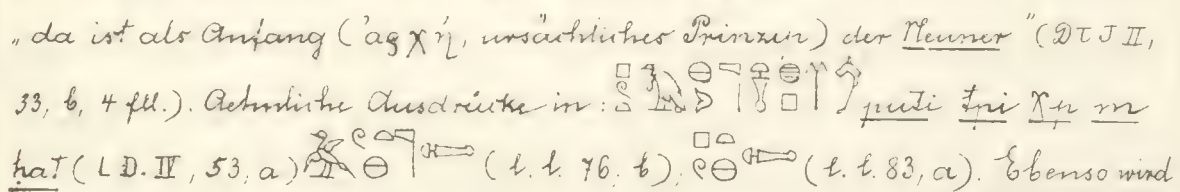 „da ist als Anfang (ἀρχή, ursächliches Prinzip) der Neuner" (DTJ II,
33, b, 4 fll.). Aehnliche Ausdrücke in: puti tpi m
ḥaT (LD. IV, 53, a) (l. l. 76. b). (l. l. 83, a). Ebenso wird